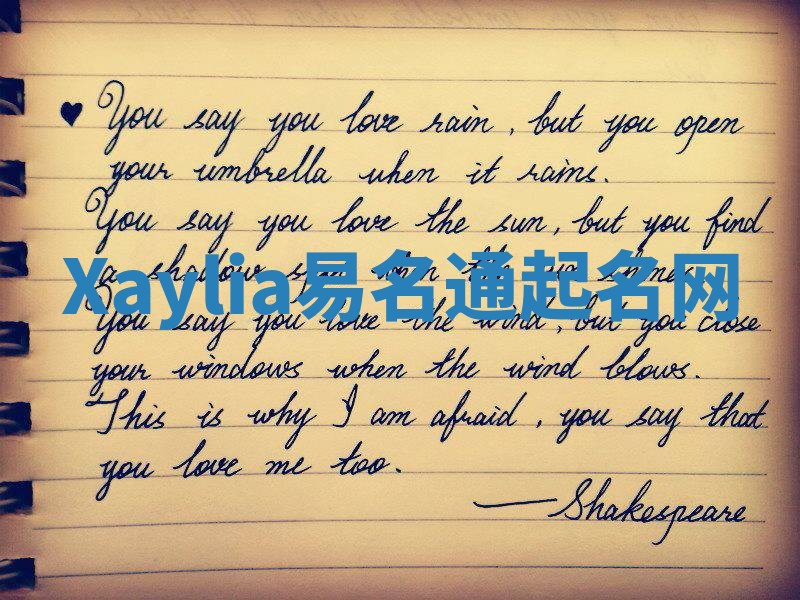 ♥ You say you love rain, but you open
your umbrella when it rains.
You say you love the sun, but you find
a shadow spot when the sun shines.
Xaylia易名通起名网
You say you love the wind, but you close
your windows when the wind blows.
This is why I am afraid, you say that
you love me too.
—Shakespeare